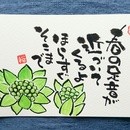 春の足音が
近づいて
くるよ
ほらすぐ
そこまで